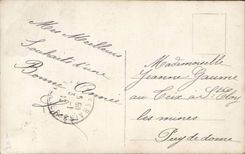 Mes Meilleurs
Souhaits d'une
Bonne Année
Mademoiselle
Jeanne Gaume
au Coix a St Eloy
les mines
Puy de dome